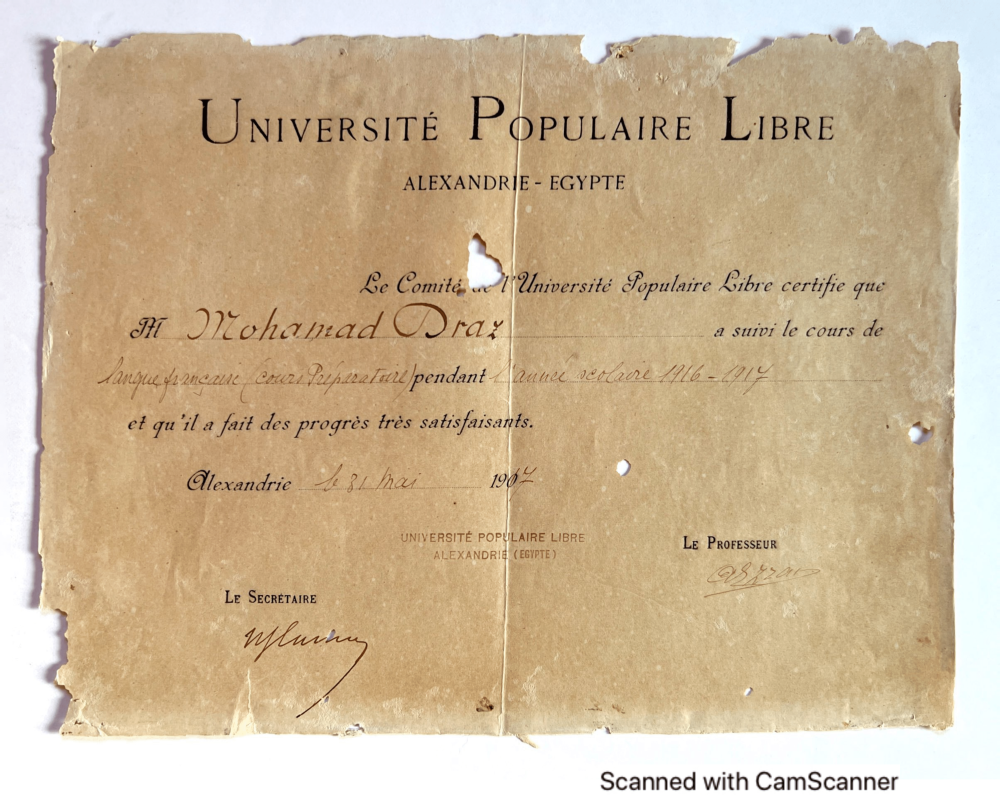 UNIVERSITÉ POPULAIRE LIBRE
ALEXANDRIE - EGYPTE
Le Comité de l'Université Populaire Libre certifie que
M Mohamad Draz a suivi le cours de
langue française (cours Préparatoire) pendant l'année scolaire 1916-1917
et qu'il a fait des progrès très satisfaisants.
Alexandrie le 31 Mai 1917
UNIVERSITÉ POPULAIRE LIBRE
ALEXANDRIE (EGYPTE)
LE PROFESSEUR
LE SECRÉTAIRE
Scanned with CamScanner